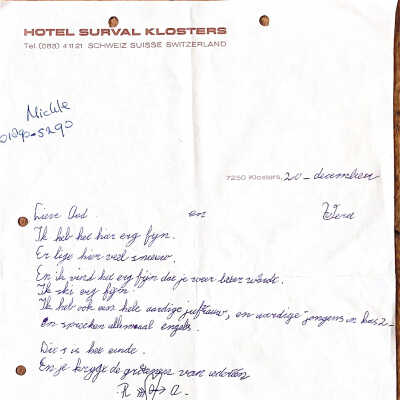 HOTEL SURVAL KLOSTERS
Tel. (083) 4 11 21 SCHWEIZ SUISSE SWITZERLAND
01090-5290
7250 Klosters, 20-december
Lieve en
Ik heb het hier erg fijn.
Er ligt hier veel sneeuw.
En ik vind het erg fijn dat je weer beter wordt.
Ik ski erg fijn.
Ik heb ook een hele aardige juffrouw, en aardige jongens in klas 2-
en spreeken allemaal engels.
Dit is het einde.
En je krijgt de groetjes van